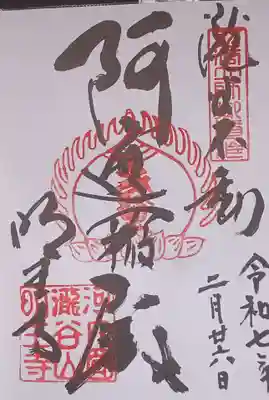 瀧谷不動
阿遮
殿
明王寺
令和七年
二月廿六日
河内國
瀧谷山
明王寺